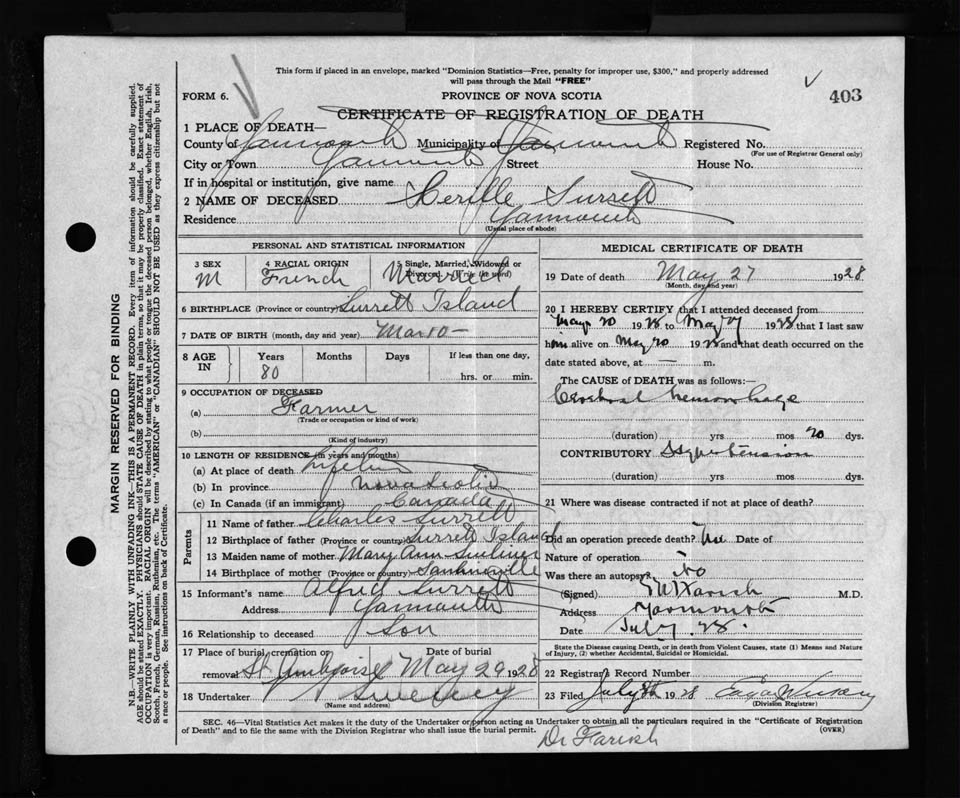 This form if placed in an envelope, marked "Dominion Statistics—Free, penalty for improper use, $300," and properly addressed
will pass through the Mail "FREE"
FORM 6. PROVINCE OF NOVA SCOTIA 403
CERTIFICATE OF REGISTRATION OF DEATH
1 PLACE OF DEATH—
County of Yarmouth Municipality of Yarmouth Registered No.
(For use of Registrar General only)
City or Town Yarmouth Street House No.
If in hospital or institution, give name
2 NAME OF DECEASED Cerille Surrett
Residence Yarmouth
(Usual place of abode)
PERSONAL AND STATISTICAL INFORMATION
3 SEX 4 RACIAL ORIGIN 5 Single, Married, Widowed or
Divorced (Write the word)
M French Married
6 BIRTHPLACE (Province or country) Surrett Island
7 DATE OF BIRTH (month, day and year) Mar 10 —
8 AGE IN Years Months Days If less than one day,
80 hrs. or min.
9 OCCUPATION OF DECEASED
(a) Farmer
(Trade or occupation or kind of work)
(b)
(Kind of industry)
10 LENGTH OF RESIDENCE (in years and months)
(a) At place of death Lifetime
(b) In province Nova Scotia
(c) In Canada (if an immigrant) Canada
Parents
11 Name of father Charles Surrett
12 Birthplace of father (Province or country) Surrett Island
13 Maiden name of mother Mary Ann
14 Birthplace of mother (Province or country)
15 Informant's name Alfred Surrett
Address Yarmouth
16 Relationship to deceased Son
17 Place of burial, cremation or removal Date of burial
St Ambroise May 29 1928
18 Undertaker Sweeney
(Name and address)
MEDICAL CERTIFICATE OF DEATH
19 Date of death May 27 1928
(Month, day and year)
20 I HEREBY CERTIFY that I attended deceased from
May 20 1928 to May 27 1928 that I last saw
him alive on May 20 1928 and that death occurred on the
date stated above, at — m.
The CAUSE OF DEATH was as follows:—
Cerebral hemorrhage
(duration) yrs mos 20 dys.
CONTRIBUTORY Hypertension
(duration) yrs mos dys.
21 Where was disease contracted if not at place of death?
Did an operation precede death? No Date of
Nature of operation
Was there an autopsy? No
(Signed) Farish M.D.
Address Yarmouth
Date July 28.
State the Disease causing Death, or in death from Violent Causes, state (1) Means and Nature
of Injury, (2) whether Accidental, Suicidal or Homicidal.
22 Registrar's Record Number
23 Filed July 1928
(Division Registrar)
SEC. 46—Vital Statistics Act makes it the duty of the Undertaker or person acting as Undertaker to obtain all the particulars required in the "Certificate of Registration
of Death" and to file the same with the Division Registrar who shall issue the burial permit. (OVER)
Dr Farish
MARGIN RESERVED FOR BINDING
N.B. WRITE PLAINLY WITH UNFADING INK—THIS IS A PERMANENT RECORD. Every item of information should be carefully supplied.
AGE should be stated EXACTLY. PHYSICIANS should STATE CAUSE OF DEATH in plain terms, so that it may be properly classified. Exact statement of
OCCUPATION is very important. RACIAL ORIGIN will be described by stating to what people or tongue the deceased person belonged, whether English, Irish,
Scotch, French, German, Russian, Ruthenian, etc. The terms "AMERICAN" or "CANADIAN" SHOULD NOT BE USED as they express citizenship but not
a race or people. See instructions on back of Certificate.